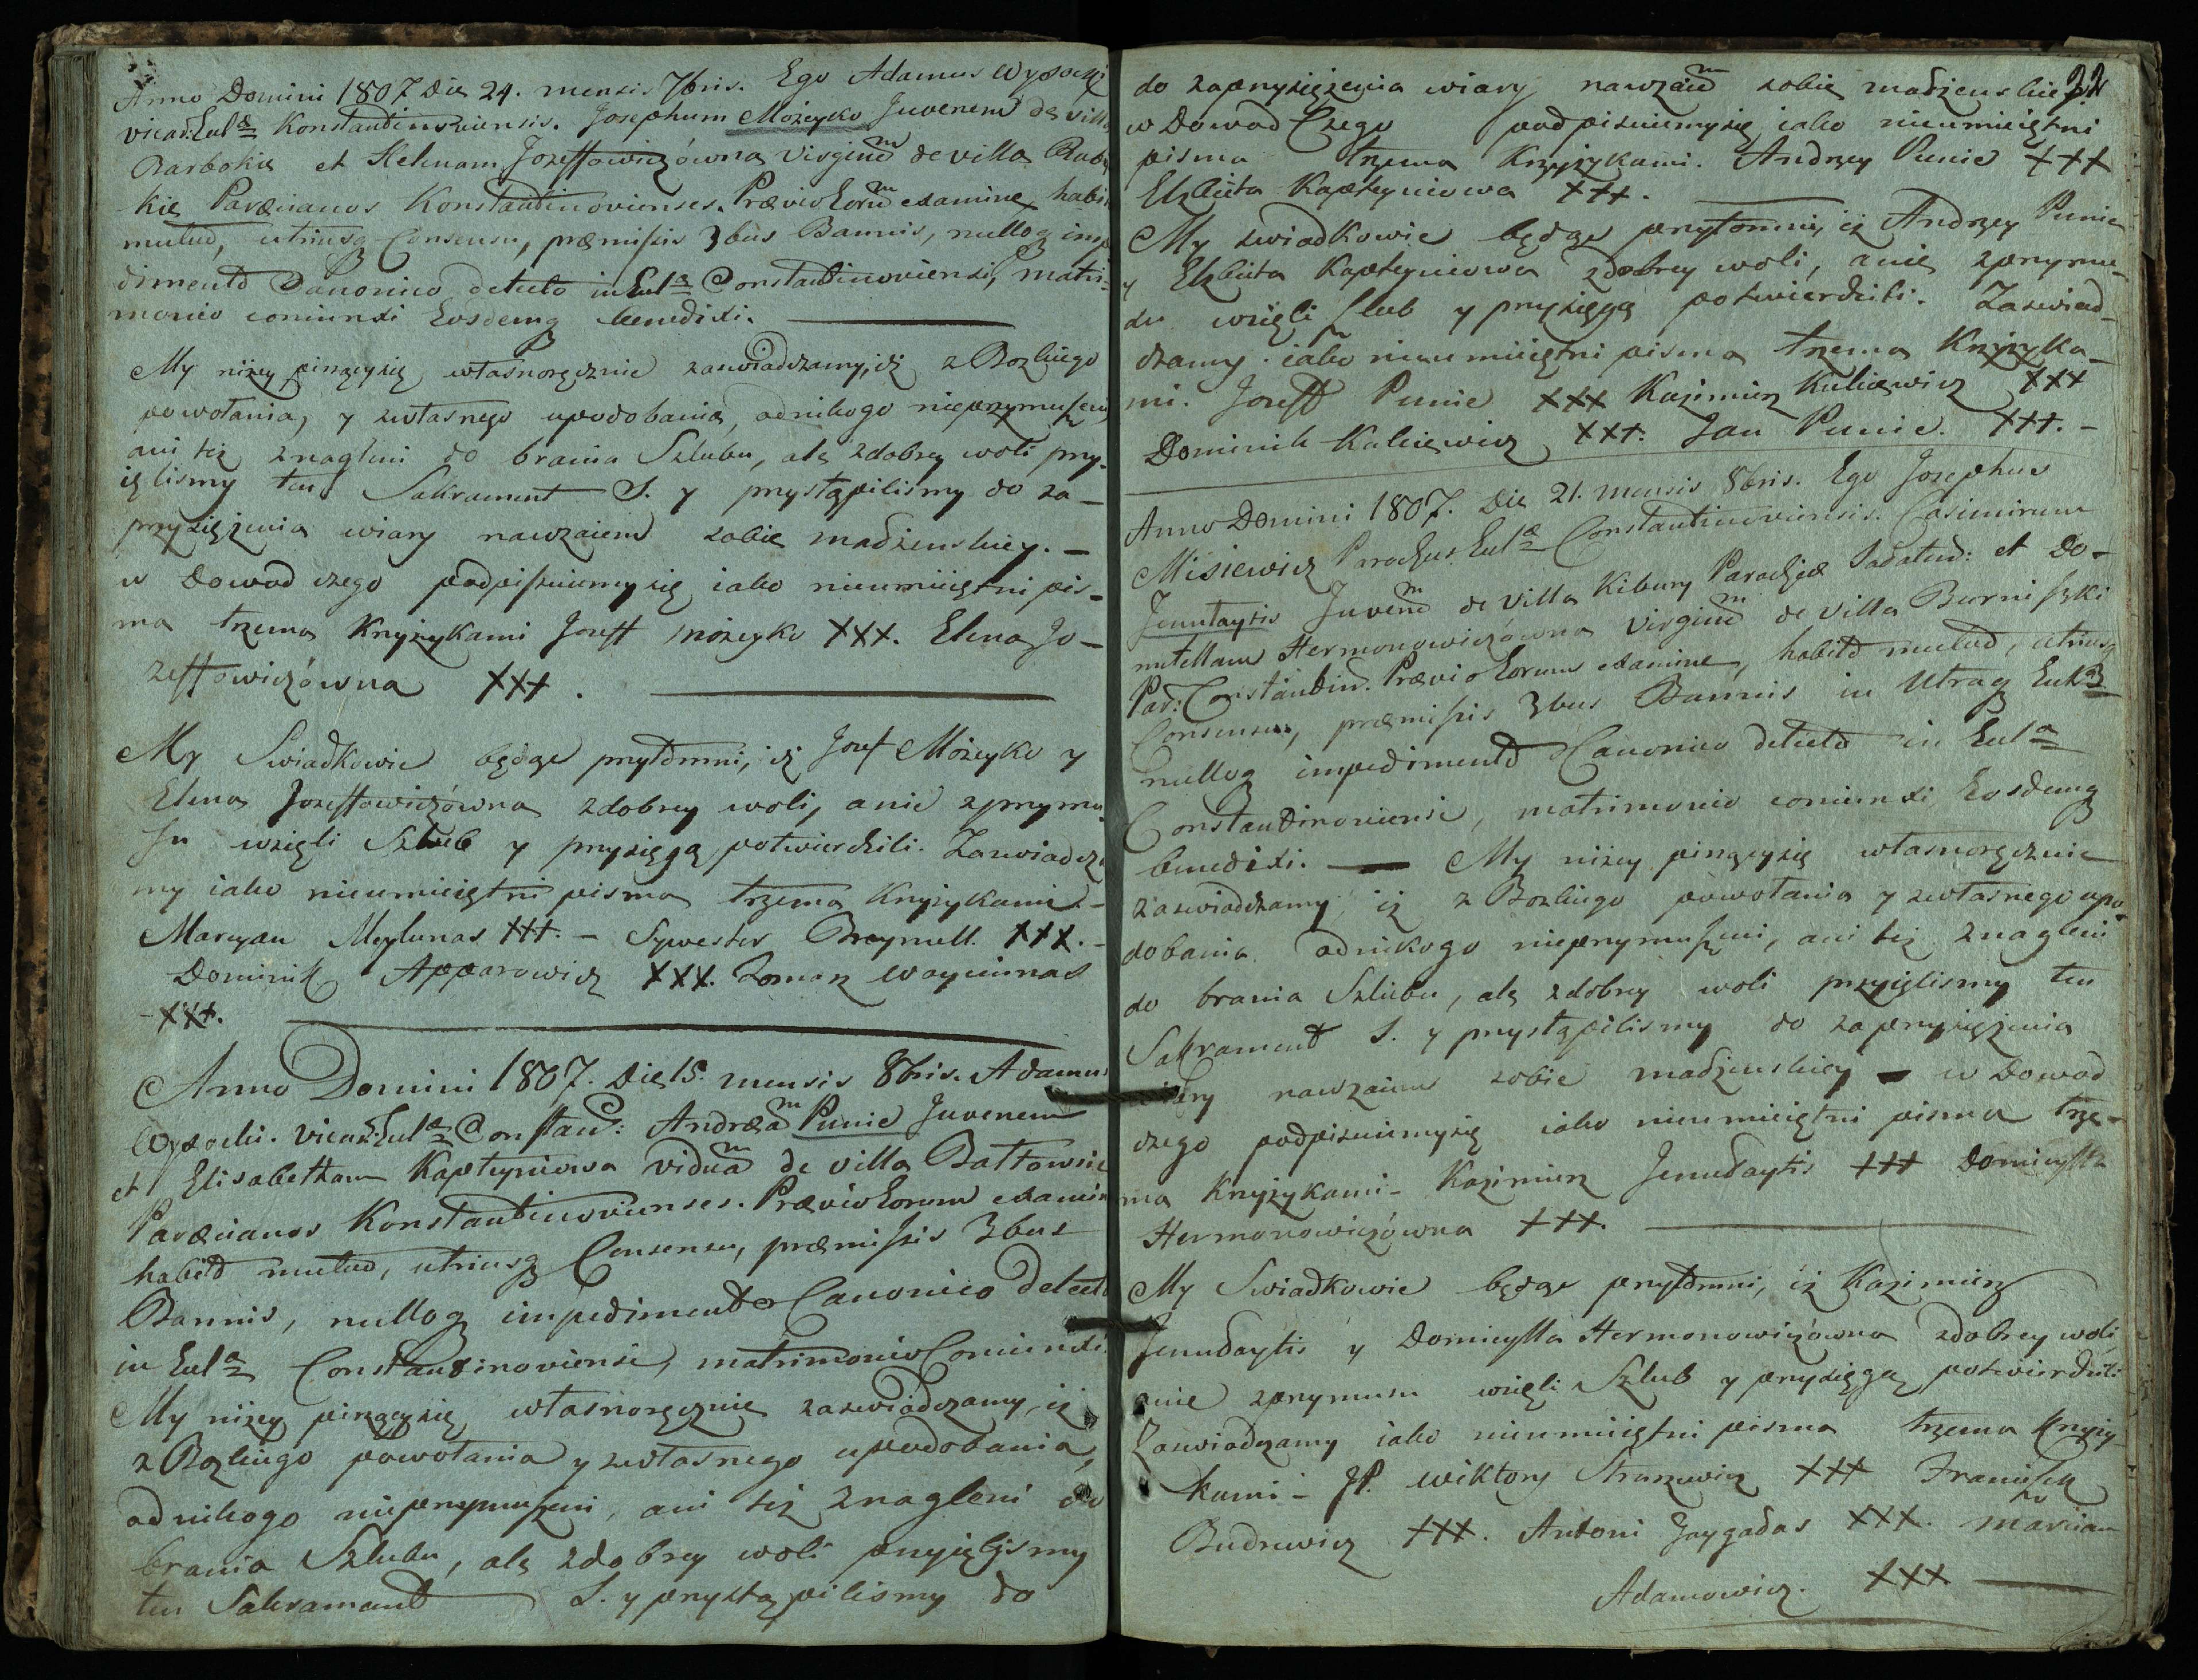 Anno Domini 1807 Die 24. mensis 7bris. Ego Adamus Wysocki
vicar: Eul&#7491; Konstantinoviensis. Josephum Możeyko Juvenem de villa
Barbokie et Helenam Jozeffowiczówna Virginem de villa
kie Paræcianos Konstantinovienses. Prævio Eorum examine, habito
mutuo, utriusq Consensu, præmissis 3bus Bannis, nulloq impe
dimento Canonico detecto in Eulᵃ Constantinoviensi, matri-
monio coniunxi Eosdemq benedixi.
My niżey piszący się własnoręcznie zaswiadczamy, iż z Bozkiego
powołania, y zwłasnego upodobania, odnikogo nieprzymuszeni
ani też znagleni do brania Szlubu, ale zdobrey woli przy-
ięlismy ten Sakrament S. y przystąpilismy do za-
przysiężenia wiary nawzaiem sobie madżenskiey. -
w Dowod czego podpisuiemy się iako nieumieiętni pis-
ma trzema Krzyżykami Jozeff Możeyko XXX. Elena Jo-
zeffowiczówna XXX.
My Swiadkowie będąc przytomni, iż Jozef Możeyko y
Elena Jozeffowiczówna zdobrey woli, anie zprzymu
su wzięli Szlub y przysięgą potwierdzili. Zaswiadcza
my iako nieumieiętni pisma trzema Krzyżykami -
Maryan Meylunas XXX. - Sywester Braymell. XXX. -
Dominik Apparowicz XXX. Tomasz Woyciunas
- XXX.
Anno Domini 1807. Die 15. mensis 8bris. Adamus
Wysocki. vicar: Eulᵃ Constan: Andræam Punie Juvenem
et Elisabetham Kapteyniowa viduam de villa Baltowsie
Paræcianos Konstantinovienses. Prævio Eorum examine
habito mutuo, utriusq Consensu, præmissis 3bus
Bannis, nulloq impedimento Canonico detecto
in Eulᵃ Constantinoviensi, matrimonio Coniunxi.
My niżey piszący się własnoręcznie zaswiadczamy, iż
z Bozkiego powołania y zwłasnego upodobania,
odnikogo nieprzymuszeni, ani też znagleni do
brania Szlubu, ale zdobrey woli przyięlismy
ten Sakrament S. y przystąpilismy do
22
do zaprzysiężenia wiary nawzaiem sobie madżenskiey
w Dowod Czego podpisuiemy się iako nieumieiętni
pisma trzema Krzyżykami. Andrzey Punie XXX
Elzbieta Kapteyniowa XXX.
My swiadkowie będąc przytomni, iż Andrzey Punie
y Elzbieta Kapteyniowa zdobrey woli, anie zprzymu-
su wzięli slub y przysięgą potwierdzili. Zaswiad-
czamy iako nieumieiętni pisma trzema Krzyżyka-
mi. Jozeff Punie XXX Kazimierz Kulicewicz XXX
Dominik Kaliewicz XXX. Jan Punie. XXX. -
Anno Domini 1807. Die 21. mensis 8bris. Ego Josephus
Misiewicz Parochus Eulᵃ Constantinoviensis. Casimirum
Jenulaytis Juvenem de villa Kibury Parochiæ Sadatud: et Do-
mitellam Hermonowiczówna Virginem de Villa Burniszki
Par: Constantin. Prævio Eorum examine, habito mutuo, utriusq
Consensu, præmissis 3bus Bannis in Utraq Eulᵃ
nulloq impedimento Canonico detecto in Eulᵃ
Constantinoviensi, matrimonio coniunxi, Eosdemq
benedixi. - My niżey piszący się własnoręcznie
zaswiadczamy iż z Bozkiego powołania y zwłasnego upo-
dobania. odnikogo nieprzymuszeni, ani też znagleni
do brania Szlubu, ale zdobrey woli przyięlismy ten
Sakrament S. y przystąpilismy do zaprzysiężenia
wiary nawzaiem sobie madżenskiey - w Dowod
czego podpisuiemy się iako nieumieiętni pisma trze-
ma Krzyżykami - Kazimierz Jenudaytis XXX Domicylla
Hermonowiczówna XXX.
My Swiadkowie będąc przytomni, iż Kazimierz
Jenudaytis y Domicylla Hermonowiczówna zdobrey woli,
anie zprzymusu wzięli Szlub y przysięgą potwierdzili
Zaswiadczamy iako nieumieiętni pisma trzema Krzyży-
kami - JP. Wiktory Struszewicz XXX Franiszek
Budrewicz XXX. Antoni Jaygadas XXX. Marcian
Adamowicz. XXX